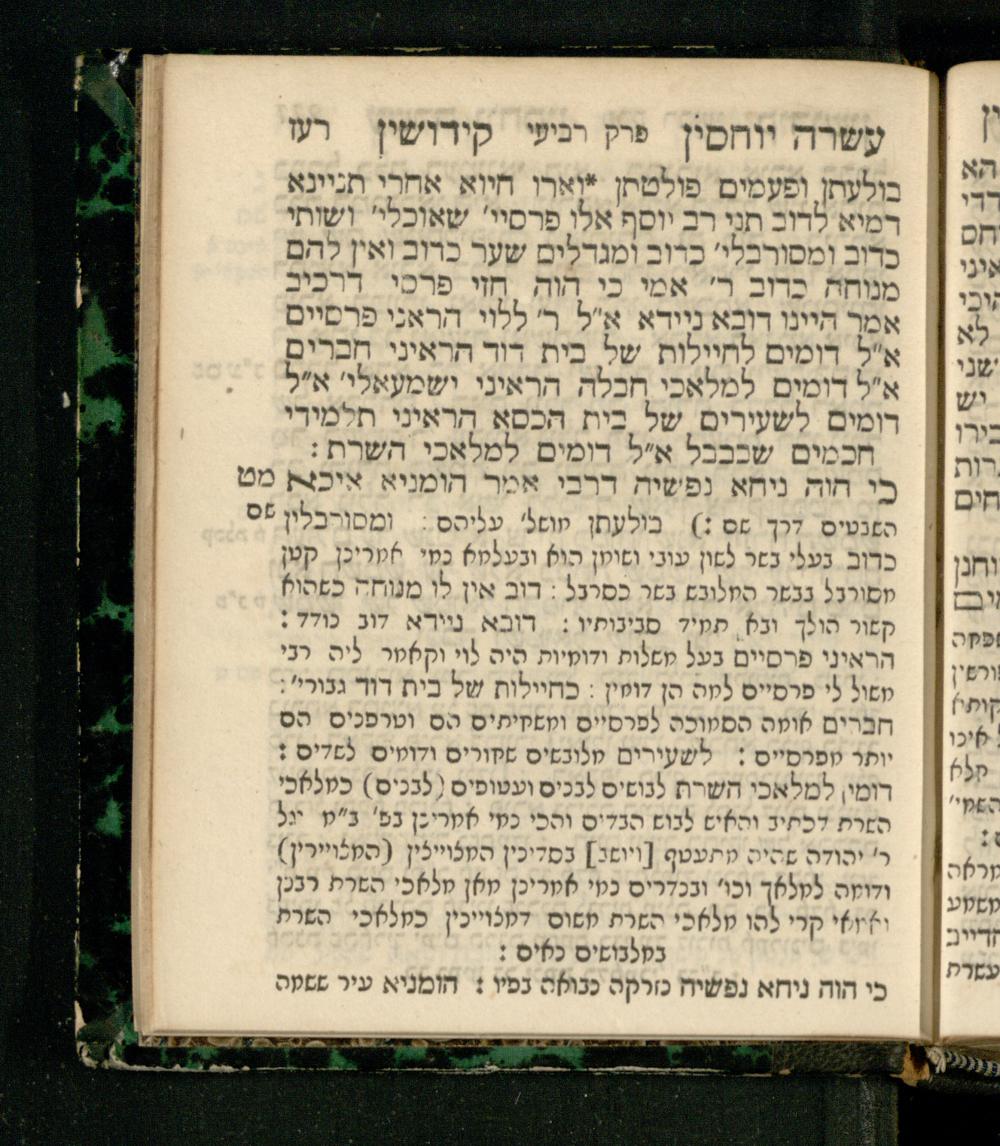 עשרה יוחסין פרק רביעי קידושין רעז
בולעתן ופעמים פולטתן *וארו חיוא אחרי תניינא
דמיא לדוב תני רב יוסף אלו פרסיי׳ שאוכלי׳ ושותי
כדוב ומסורבלי׳ כדוב ומגדלים שער כדוב ואין להם
מנוחה כדוב ר׳ אמי כי הוה חזי פרסי דרכיב
אמר היינו דובא ניידא א״ל ר׳ ללוי הראני פרסיים
א״ל דומים לחיילות של בית דוד הראיני חברים
א״ל דומים למלאכי חבלה הראיני ישמעאלי׳ א״ל
דומים לשעירים של בית הכסא הראיני תלמידי
חכמים שבבבל א״ל דומים למלאכי השרת :
כי הוה ניחא נפשיה דרבי אמר הומניא איכא מט
השנטיס דרך שם :) בולעתן מושל׳ עליהם : ומסורבלין שם
כדוב בעלי בשר לשון עובי ושומן הוא ובעלמא נמי אמרינן קטן
מסורבל בבשר המלובש בשר כסרבל : דוב אין לו מנוחה כשהוא
קשור הולך ובא תמיד סביבותיו : דובא ניידא דוב נודד :
הראיני פרסיים בעל משלות ודומיות היה לוי וקאמר ליה רבי
משול לי פרסייס למה הן דומין : כחיילות של בית דוד גבורי׳ :
חברים אומה הסמוכה לפרסיים ומשחיתים הם וטרפנים הם
יותר מפרסיים : לשעירים מלובשים שחורים ודומים לשדים :
דומין למלאכי השרת לבושים לבנים ועטופים (לבנים) כמלאכי
השרת דכתיב והאיש לבוש הבדים והכי נמי אמרינן בפ׳ ב״מ יגל
ר׳ יהודה שהיה מתעטף [ויושב] בסדינין המצוייצין (המצויירין)
ודומה למלאך וכו׳ ובנדרים נמי אמרינן מאן מלאכי השרת רבנן
ואמאי קרי להו מלאכי השרת משום דמצוייצין כמלאכי השרת
במלבושים נאים :
כי הוה ניחא נפשיה כזרקה נבואה בפיו : הומניא עיר ששמה